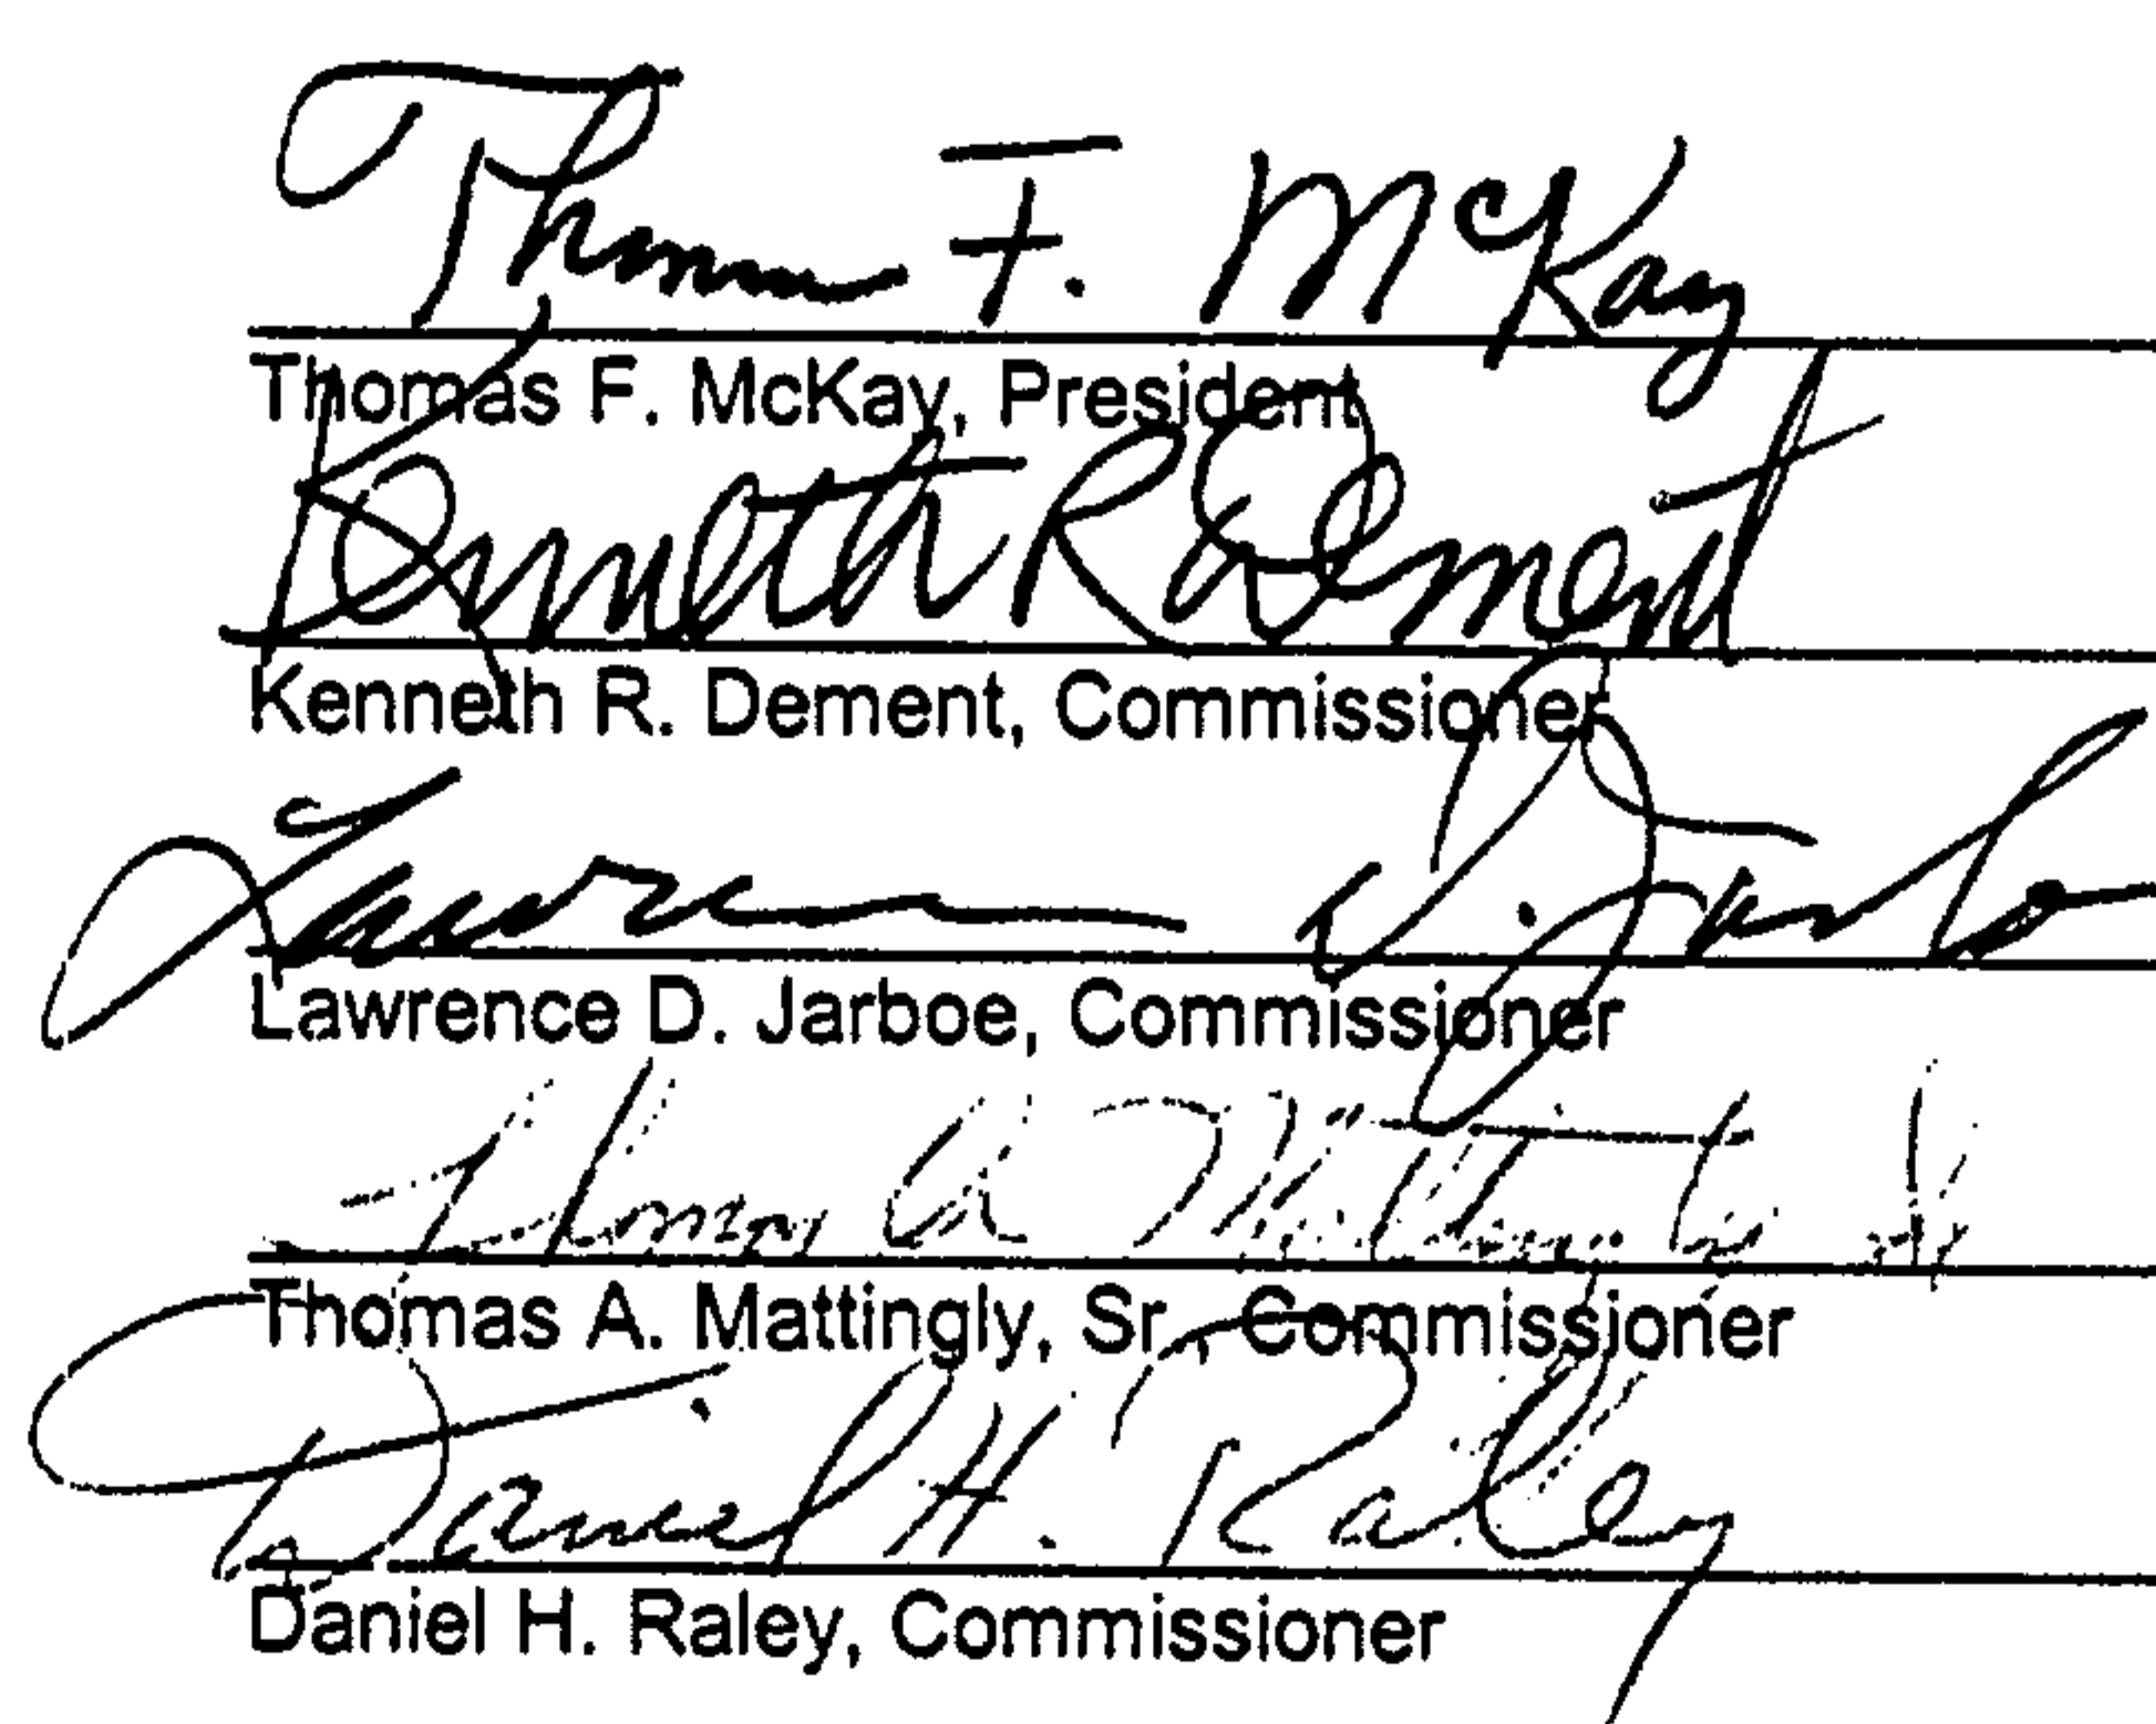 Thomas F. McKay
Thomas F. McKay, President
Kenneth R Dement
Kenneth R. Dement, Commissioner
Lawrence D. Jarbo
Lawrence D. Jarboe, Commissioner
Thomas A Mattingly Sr
Thomas A. Mattingly, Sr., Commissioner
Daniel H. Raley
Daniel H. Raley, Commissioner